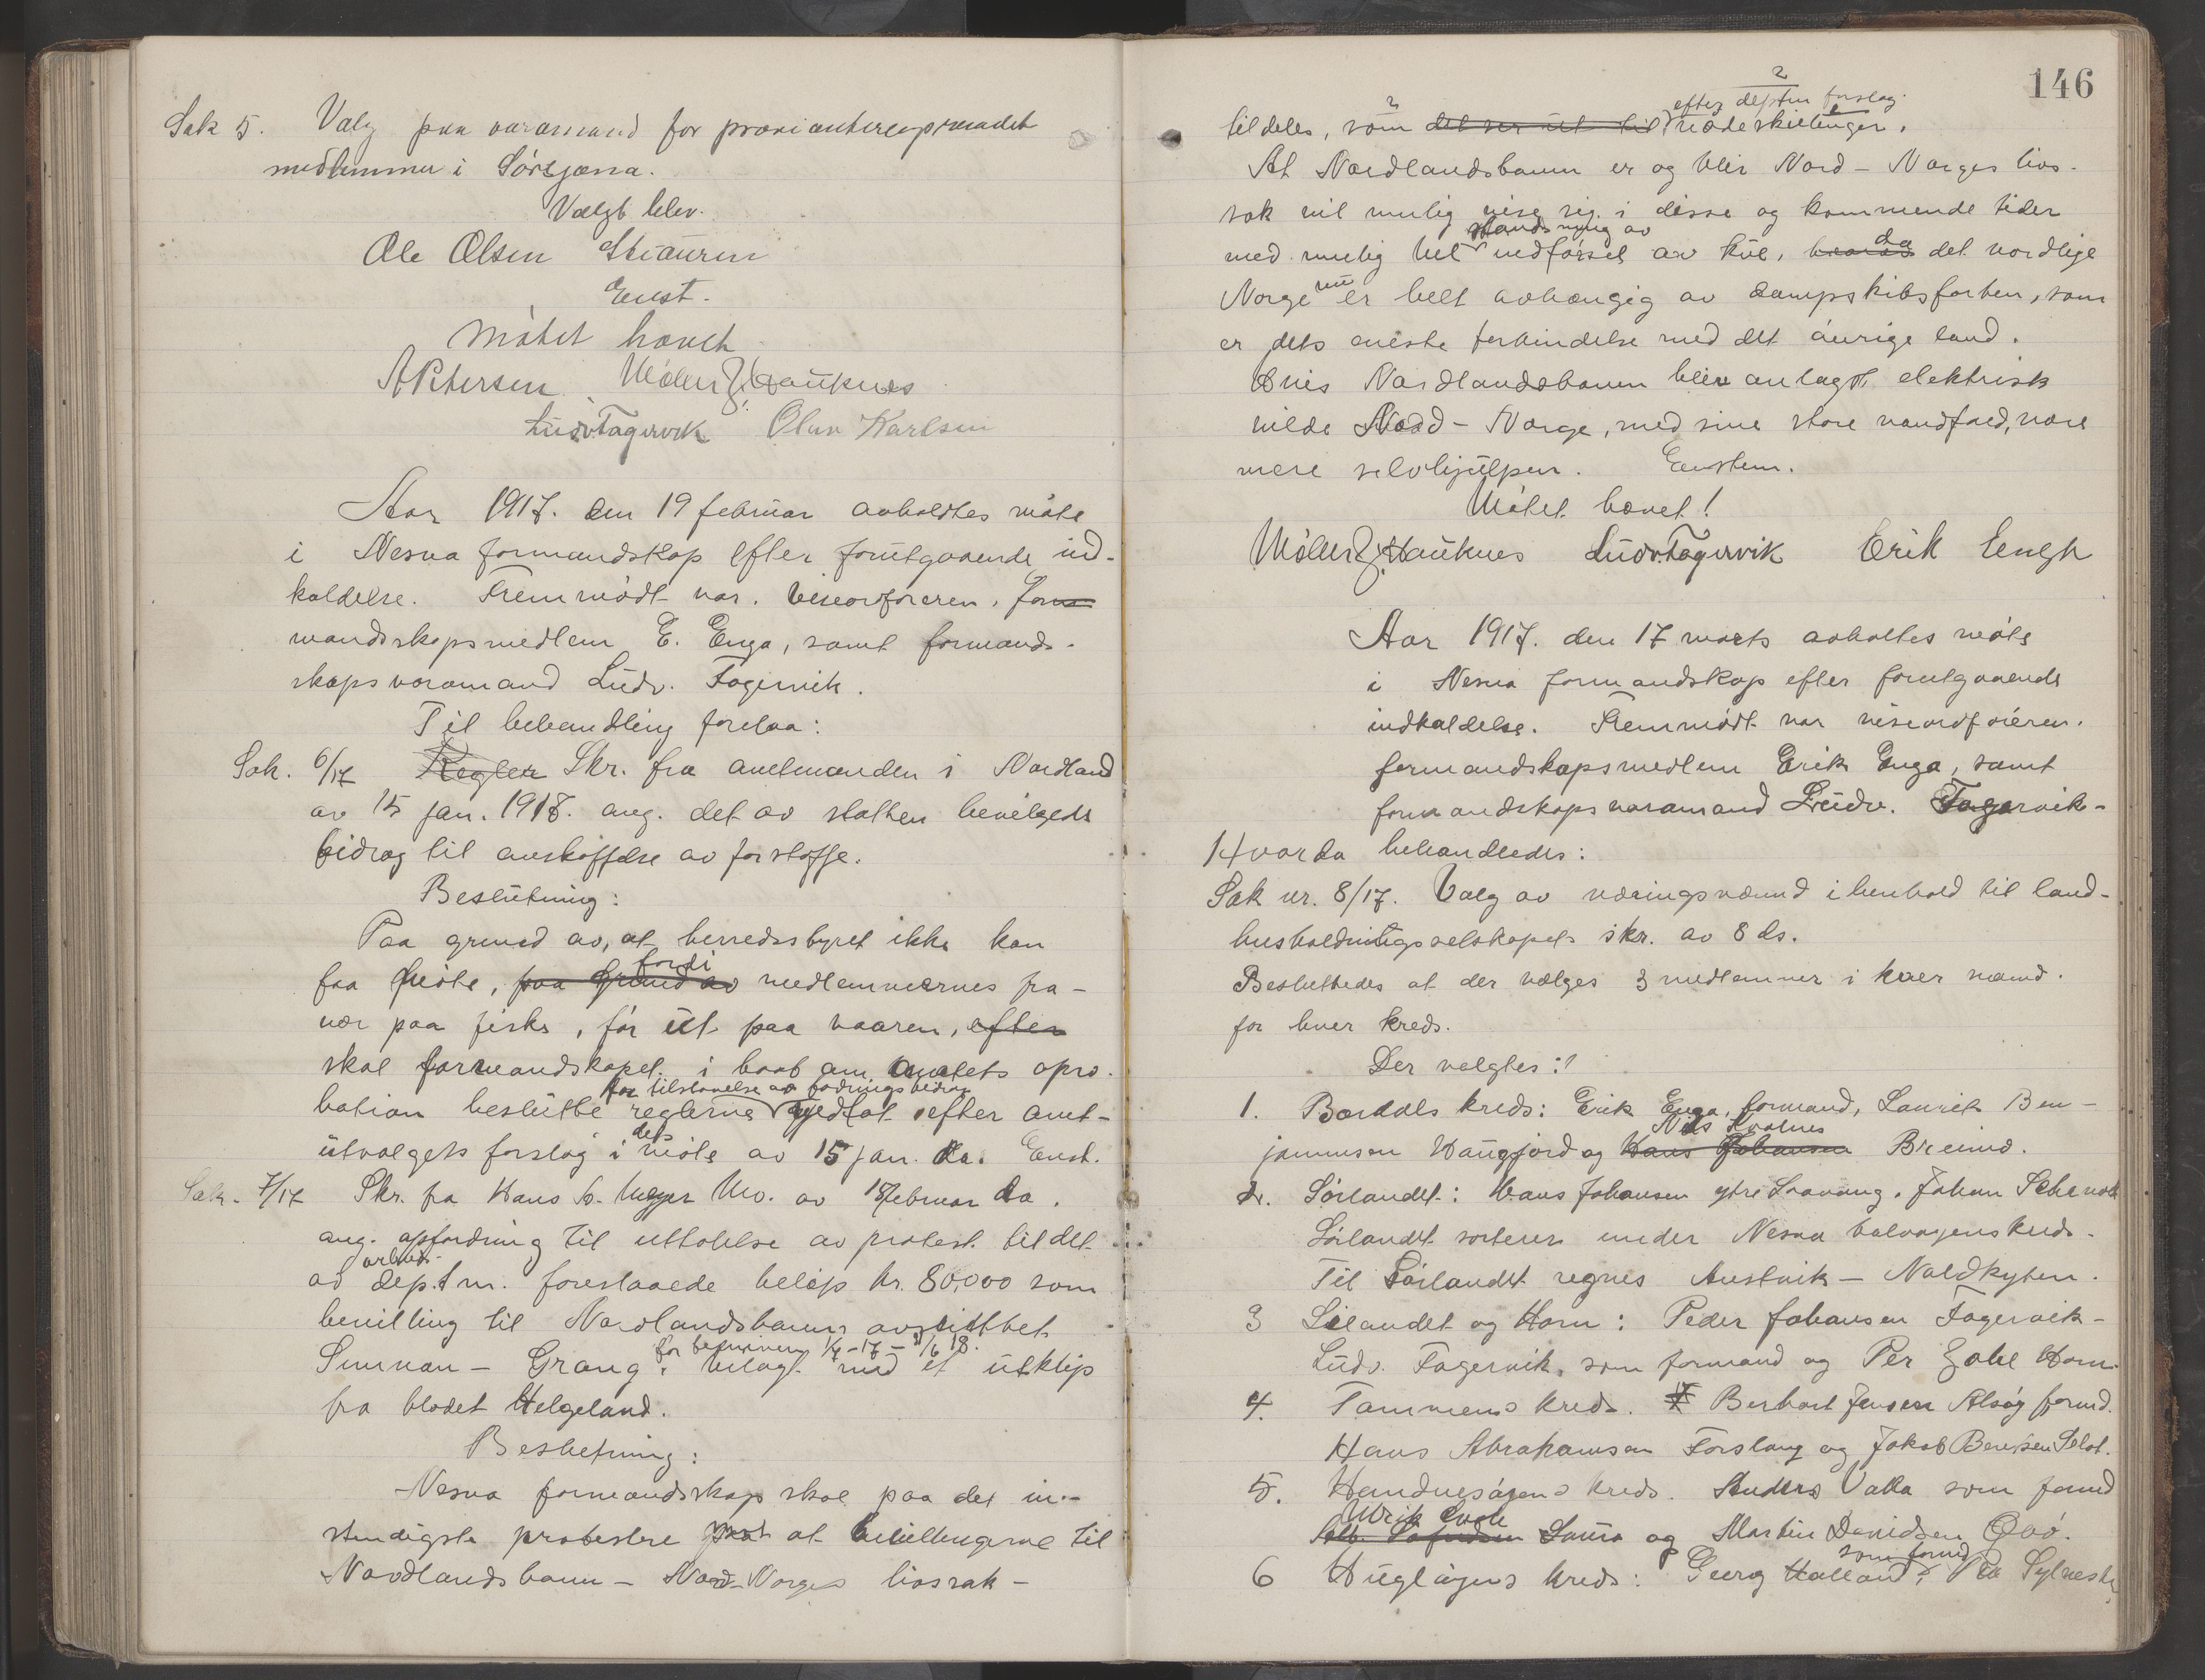 Sak 5. Valg paa varamand for provianteringsraadet
medlemmer i Sörsjona.
Valgt blev.
Ole Olsen Skauren
Enst.
Mötet hævet
A Petersen Meyer Z. Hauknes
Ludv. Fagervik Olav Karlsen
Aar 1917. den 19 februar avholdtes möte
i Nesna formandskap efter forutgaaende ind-
kaldelse. Fremmödt var. viseordföreren, for
mandskapsmedlem E. Enga, samt formand-
skaps varamand Ludv. Fagervik.
Til behandling forelaa:
Sak. 6/17 Regler Skr. fra amtmanden i Nordland
av 15 jan. 1918. ang. det av statten bevilgede
bidrag til anskaffelse av forstoffe.
Beslutning:
Paa grund av, at herredsstyret ikke kan
fordi
faa möte, paa grund av medlemmernes fra-
vær paa fiske, för ut paa vaaren, efter
skal formandskapet i haab om amtets apro-
for tilstaaelse av fodringsbidrag
bation beslutte reglerne vedtat efter amt-
det
utvalgets forslag i möte av 15 jan. da. Enst.
Sak. 7/17 Skr. fra Hans A. Meyer Mo. av 1 februar da.
ang. opfordring til uttalelse av protest til det
arbeids
av dept.m. foreslaaede belöp kr. 80,000 som
bevilling til Nordlandsbanen avsnittet
for terminen 1/7-17 - 1/6 18.
Sunnan - Grong. vilagt med et utklip
fra bladet Helgeland.
Beslutning:
Nesna formandskap skal paa det in-
stendigste protestere mot at bevillingerne til
Nordlandsbanen - Nord-Norges livssak -
146
2
2 efter deptm forslag
tildeles, som det ser ut til nödeskillinger.
At Nordlandsbanen er og blir Nord-Norges livs-
sak vil mulig vise sig i disse og kommende tider
standsning av
med mulig hel indförsel av kul, hvorav da det nordlige
nu
Norge er helt avhængig av dampskibsfarten, som
er dets eneste forbindelse med det övrige land.
Hvis Nordlandsbanen blev anlagt elektrisk
vilde Nord-Norge, med sine store vandfald, være
mere selvhjulpen. Enstem.
Mötet hævet!
Meyer Z. Hauknes Ludv. Fagervik Erik Engh
Aar 1917. den 17 marts avholtes möte
i Nesna formandskap efter forutgaaende
indkaldelse. Fremmödt var viseordföreren.
formandskapsmedlem Erik Enga, samt
formandskapsvaramand Ludv. Fagervik-
Hvorda behandledes:
Sak nr. 8/17. Valg av næringsnævnd i henhold til land-
husholdningsselskapets skr. av 8 ds.
Besluttedes at der vælges 3 medlemmer i hver nævnd.
for hver kreds.
Der valgtes:
1. Bardals kreds: Erik Enga, formand, Laurits Ben-
Nils Kvalnes
jaminsen Haugfjord og Hans Johansen Breimo.
2. Sörlandet: Hans Johansen ytre Saavang. Johan
Sörlandet sorterer under Nesna valvaagens kreds.
Til Sörlandet regnes Austvik - Naldkyten.
3 Lilandet og Horn: Peder Johansen Fagervik-
Ludv. Fagervik, som formand og Per Zahl Horn.
4. Tommens kreds. Berhart Jensen Alsög formd.
Hans Abrahamsen Forslang og Jakob Berntsen
5. Handnesöyens kreds. Anders Valla som formd
Saura og Martin Danidsen
som formd
6 Huglöyens kreds: Georg Hatland, Per Sylvester